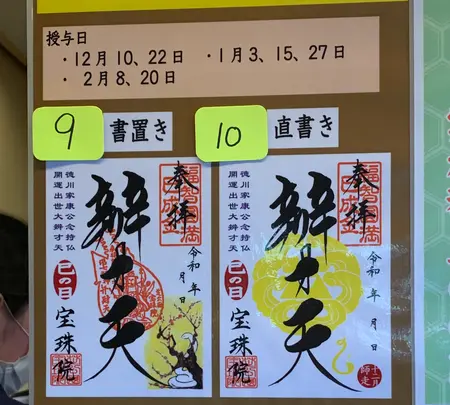 授与日
・12月 10、22日 ・1月 3、15、27日
・ 2月 8、20日
9
書置き
10
直書き
奉拝
徳川家康公念持仏
開運出世大辨才天
辨才天
巳の日
令和 年 月 日
宝珠院
奉拝
徳川家康公念持仏
開運出世大辨才天
辨才天
巳の日
令和 年 月 日
宝珠院
十二月
師走